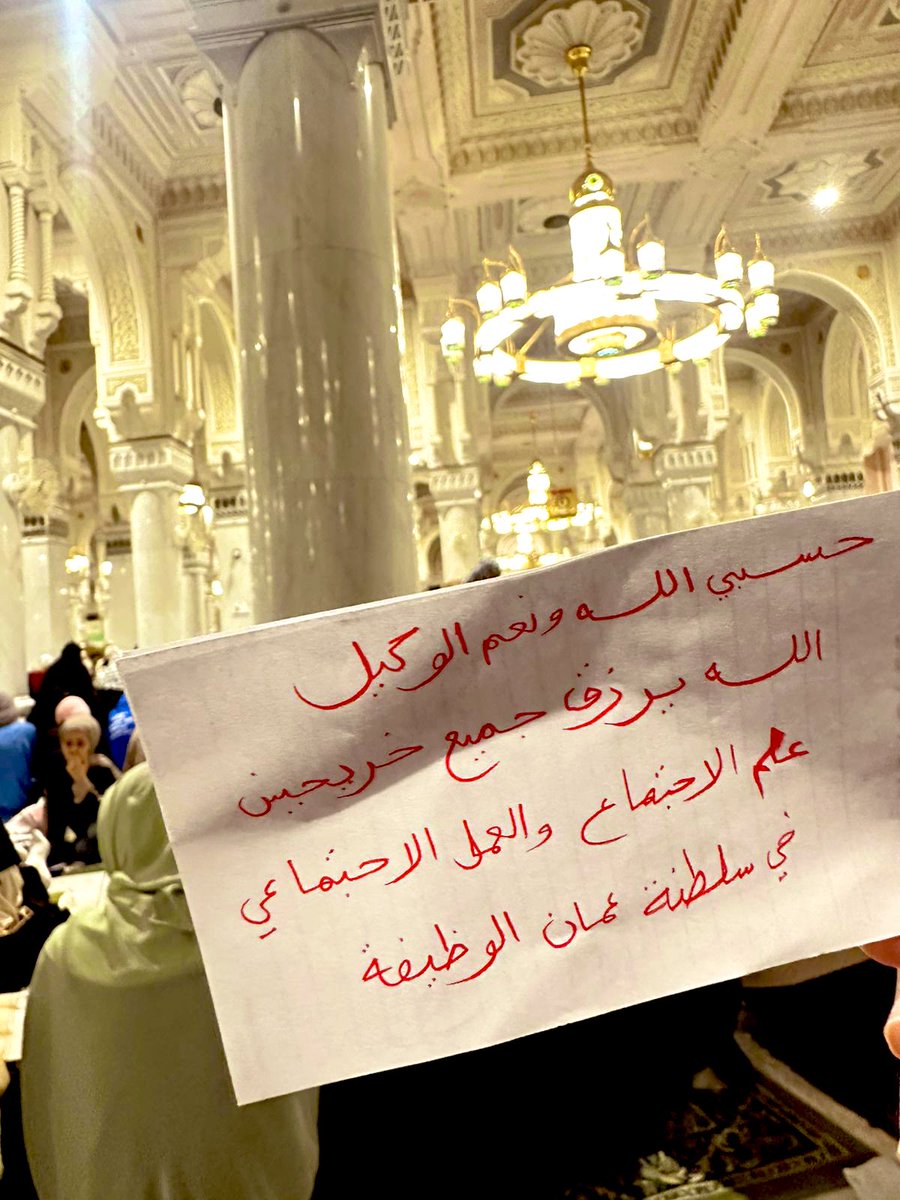 حسبي الله ونعم الوكيل
الله يرزق جميع خريجين
علم الاجتماع والعمل الاجتماعي
في سلطنة عمان الوظيفة